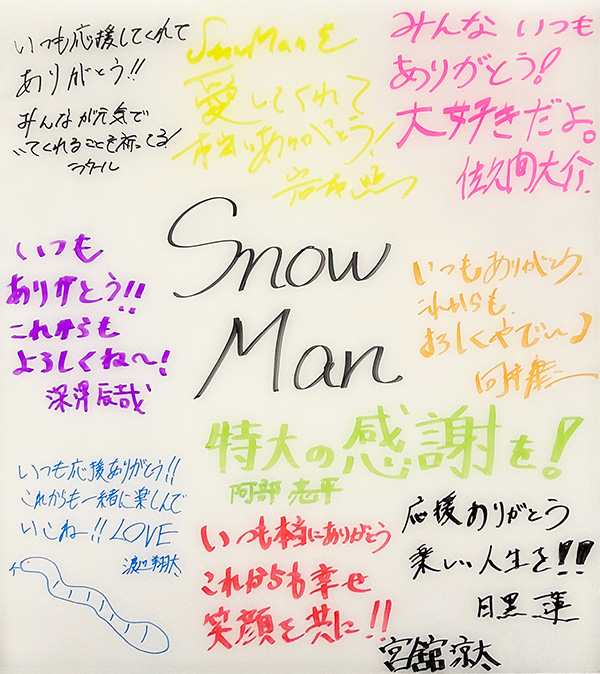 いつも応援してくれて
ありがとう!!
みんなが元気で
いてくれることを祈ってる!
ラウール
SnowManを
愛してくれて
本当にありがとう!
岩本照
みんないつも
ありがとう!
大好きだよ。
佐久間大介
Snow
Man
いつも
ありがとう!!
これからも
よろしくね〜!
深澤辰哉
いつもありがとう
これからも
よろしくやで〜♪
向井康二
特大の感謝を!
阿部亮平
いつも応援ありがとう!!
これからも一緒に楽しんで
いこね!! LOVE
渡辺翔太
いつも本当にありがとう
これからも幸せ
笑顔を共に!!
宮舘涼太
応援ありがとう
楽しい人生を!!!
目黒蓮